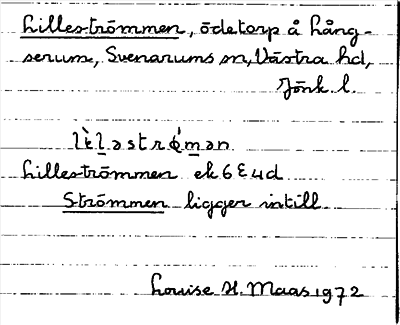 Lilleströmmen, ödetorp å Lång-
serum, Svenarums sn, Västra hd,
Jönk. l.
Lilleströmmen ek 6 E 4d
Strömmen ligger intill
Louise H. Maas 1972